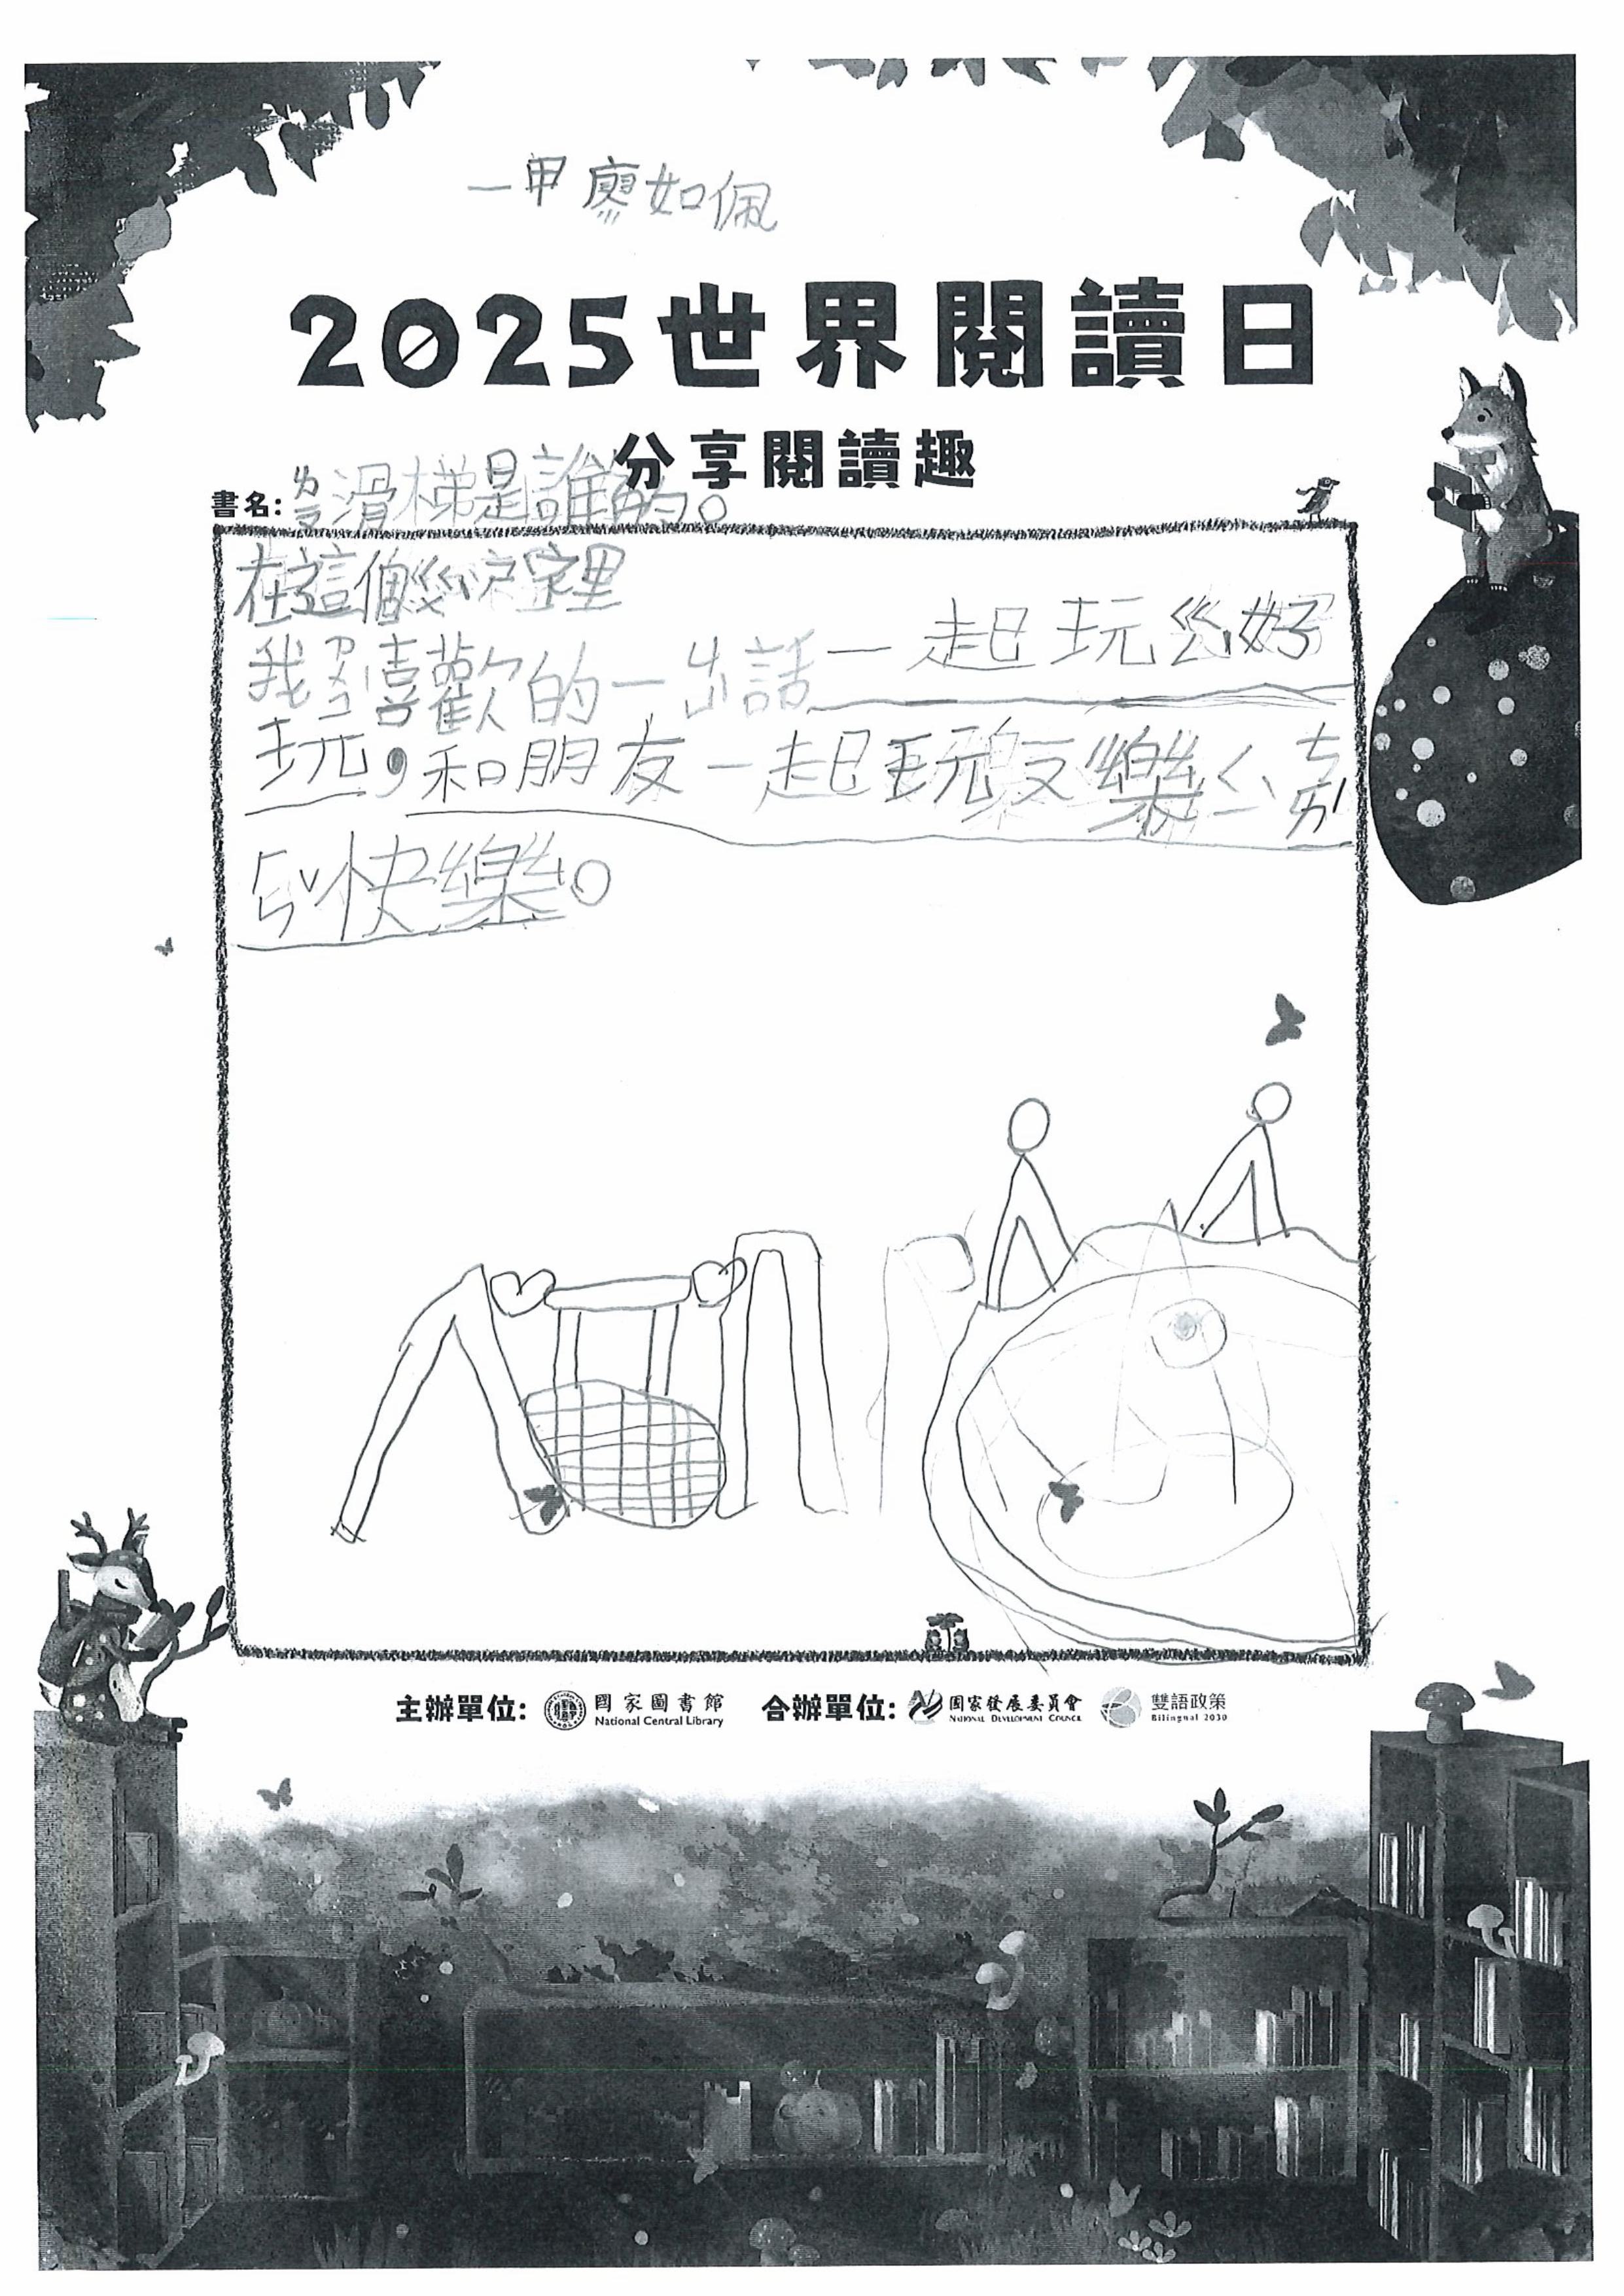 一甲 廖如佩
2025世界閱讀日
分享閱讀趣
書名: ㄌㄡ滑梯是誰的。
在這個ㄍㄨˋ字里
我ㄗㄨㄟ喜歡的一ㄐㄩ話一起玩ㄍㄥ好
玩,和朋友一起玩樂ㄑㄧㄤ
ㄎㄞ快樂。
主辦單位: 國家圖書館 National Central Library 合辦單位: 國家發展委員會 NATIONAL DEVELOPMENT COUNCIL 雙語政策 Bilingual 2030